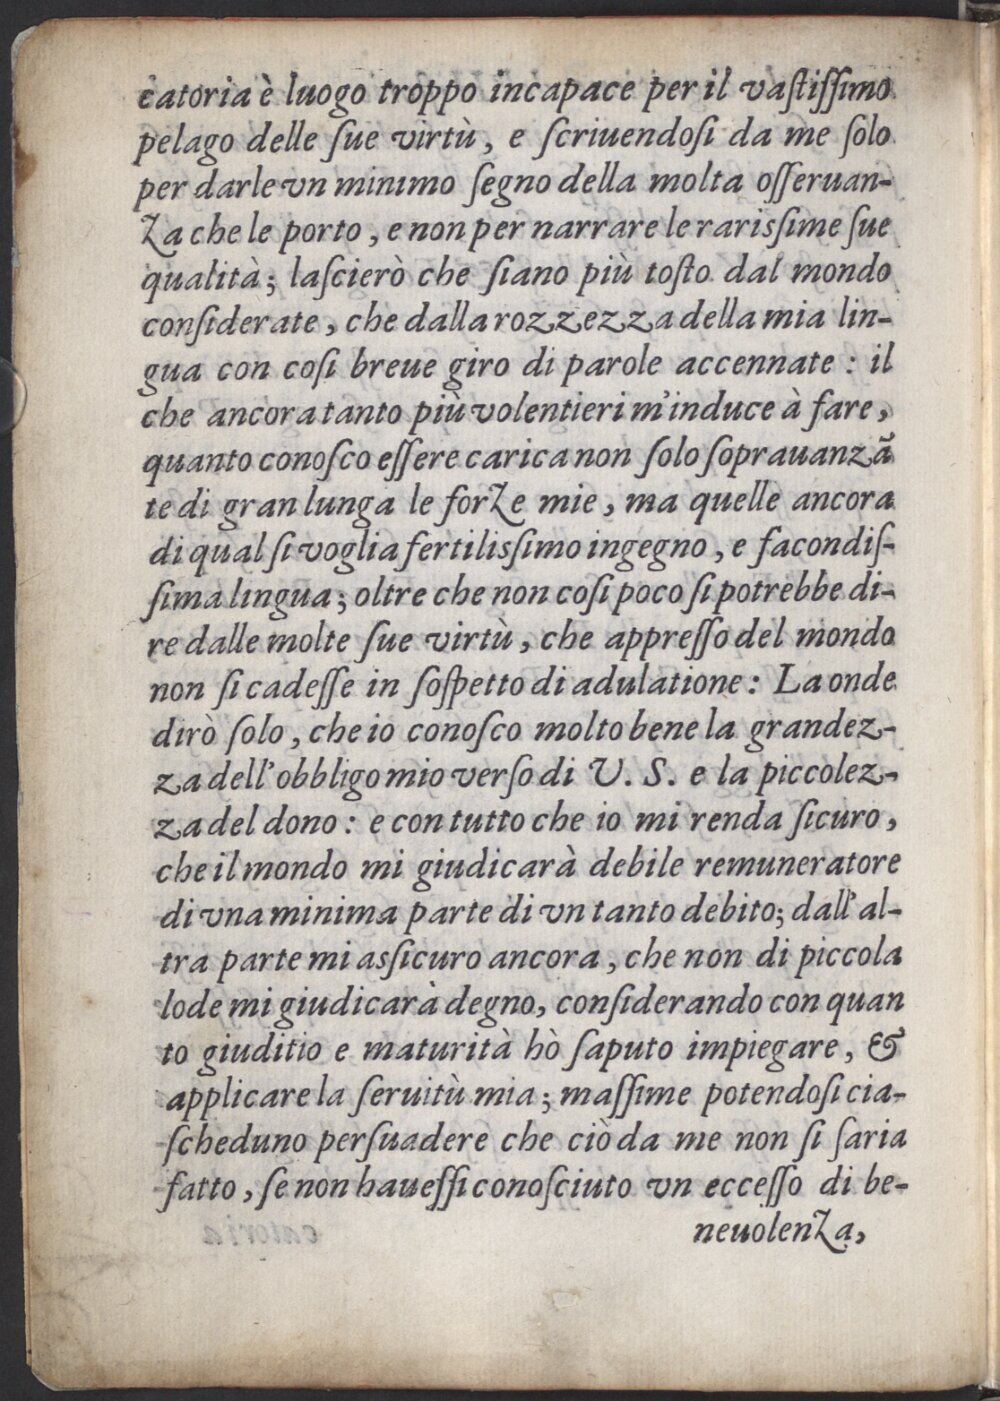 catoria è luogo troppo incapace per il vaſtiſſimo
pelago delle ſue virtù, e ſcriuendoſi da me ſolo
per darle vn minimo ſegno della molta oſſeruan-
za che le porto, e non per narrare le rarisſime ſue
qualità; laſcierò che ſiano più toſto dal mondo
conſiderate, che dalla rozzezza della mia lin-
gua con coſi breue giro di parole accennate: il
che ancora tanto più volentieri m'induce à fare,
quanto conoſco eſſere carica non ſolo ſoprauanzã
te di gran lunga le forze mie, ma quelle ancora
di qual ſi voglia fertilisſimo ingegno, e facondiſ-
ſima lingua; oltre che non coſi poco ſi potrebbe di-
re dalle molte ſue virtù, che appreſſo del mondo
non ſi cadeſſe in ſoſpetto di adulatione: La onde
dirò ſolo, che io conoſco molto bene la grandez-
za dell'obbligo mio verſo di V. S. e la piccolez-
za del dono: e con tutto che io mi renda ſicuro,
che il mondo mi giudicarà debile remuneratore
di vna minima parte di vn tanto debito; dall'al-
tra parte mi asſicuro ancora, che non di piccola
lode mi giudicarà degno, conſiderando con quan
to giuditio e maturità hò ſaputo impiegare, &
applicare la ſeruitù mia; maſſime potendoſi cia-
ſcheduno perſuadere che ciò da me non ſi ſaria
fatto, ſe non haueſſi conoſciuto vn ecceſſo di be-
neuolenza,